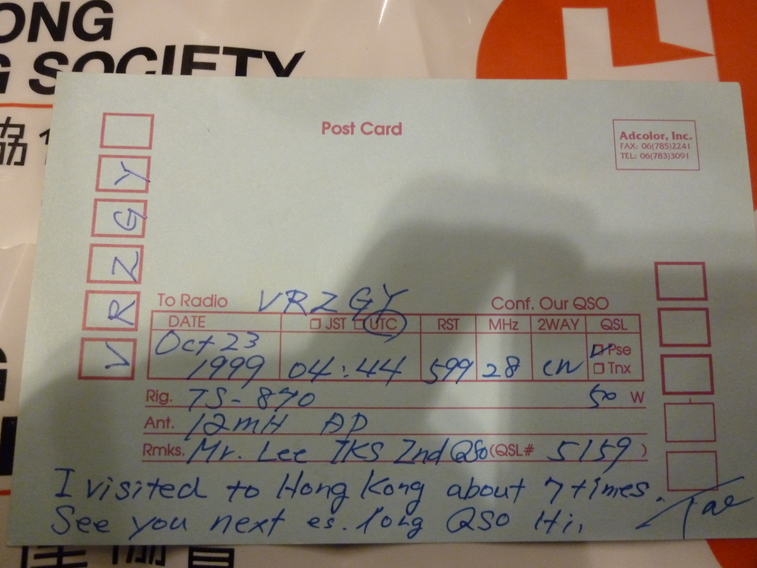 ONG
G SOCIETY
協
Post Card
Adcolor, Inc.
FAX: 06(785)2241
TEL: 06(783)3091
VRZGY
To Radio VRZGY Conf. Our QSO
DATE JST UTC RST MHz 2WAY QSL
Oct 23 1999 04:44 599 28 CW Pse Tnx
Rig. TS-870 50 W
Ant. 12mH AD
Rmks. Mr. Lee TKS 2nd QSO (QSL# 5159)
I visited to Hong Kong about 7 times.
See you next es. long QSO Hi, Tae